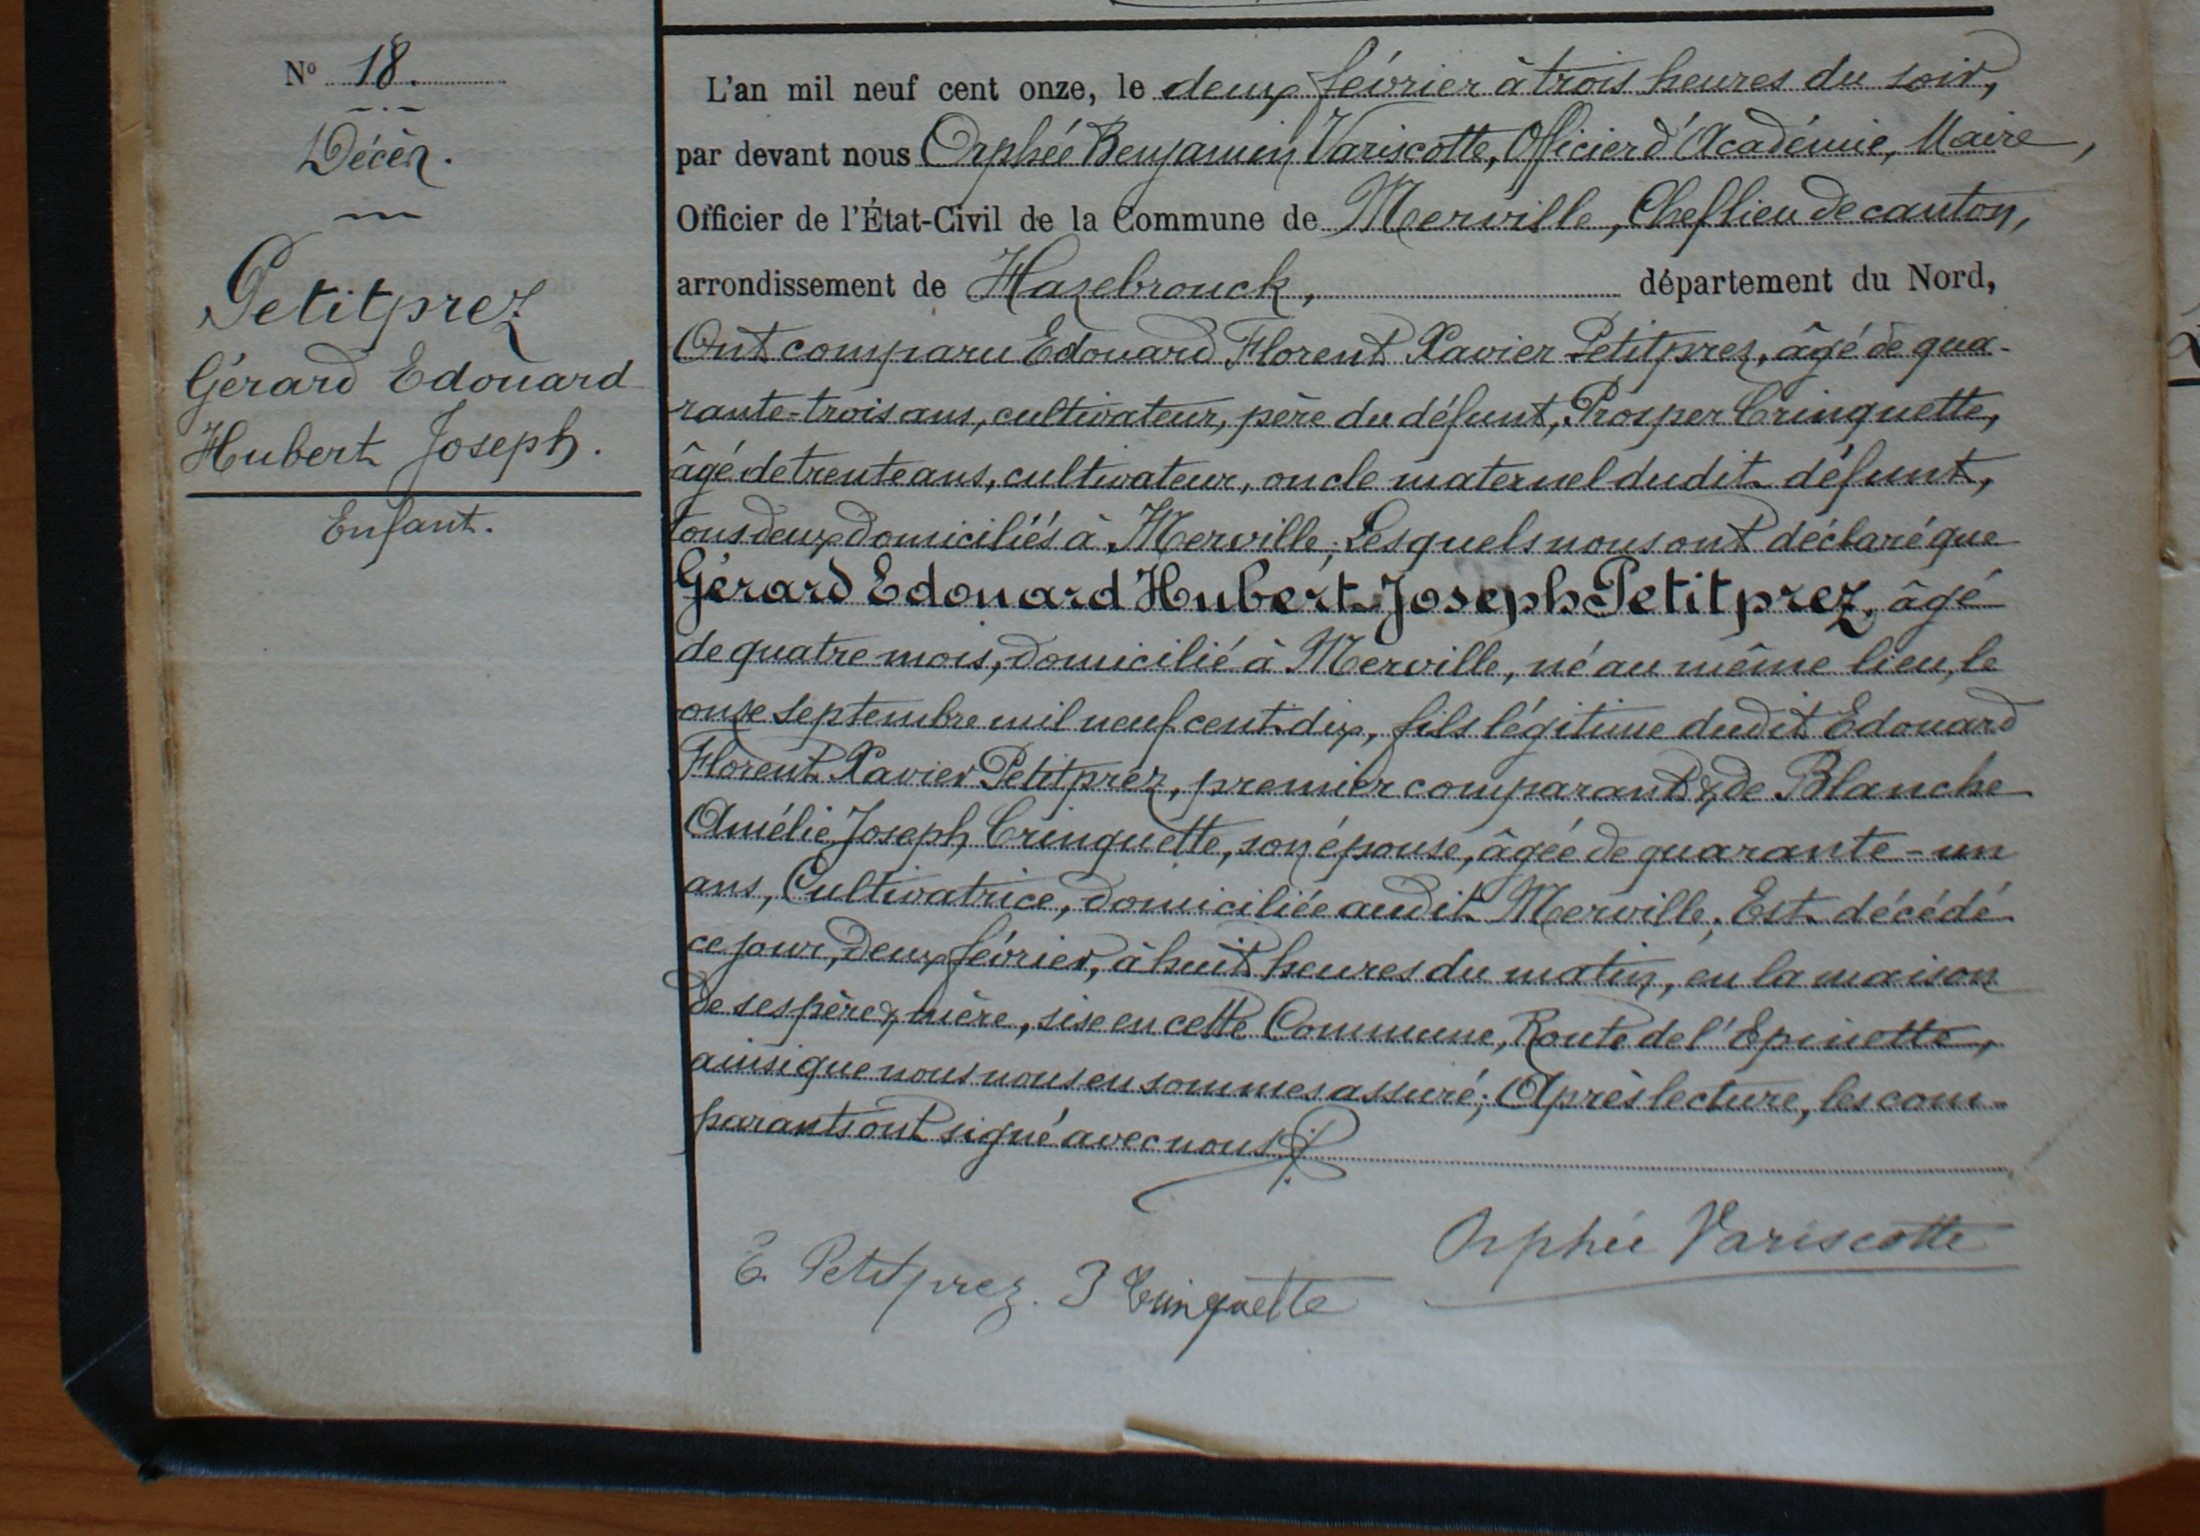 Nº 18.
Décès.
Petitprez
Gérard Edouard
Hubert Joseph.
Enfant.
L'an mil neuf cent onze, le deux février à trois heures du soir,
par devant nous Orphée Benjamin Variscotte, Officier d'Académie, Maire,
Officier de l'État-Civil de la Commune de Merville, Chef lieu de canton,
arrondissement de Hazebrouck, département du Nord,
Ont comparu Edouard Florent Xavier Petitprez, âgé de qua-
rante-trois ans, cultivateur, père du défunt, Prosper Cringuette,
âgé de trente ans, cultivateur, oncle maternel dudit défunt,
tous deux domiciliés à Merville; Lesquels nous ont déclaré que
Gérard Edouard Hubert Joseph Petitprez, âgé
de quatre mois, domicilié à Merville, né au même lieu, le
onze septembre mil neuf cent dix, fils légitime dudit Edouard
Florent Xavier Petitprez, premier comparant & de Blanche
Amélie Joseph Cringuette, son épouse, âgée de quarante-un
ans, Cultivatrice, domiciliée audit Merville, Est décédé
ce jour, deux février, à huit heures du matin, en la maison
de ses père & mère, sise en cette Commune, Route de l'Epinette,
ainsi que nous nous en sommes assuré; Après lecture, les com-
parants ont signé avec nous.
E. Petitprez. P Cringuette Orphée Variscotte